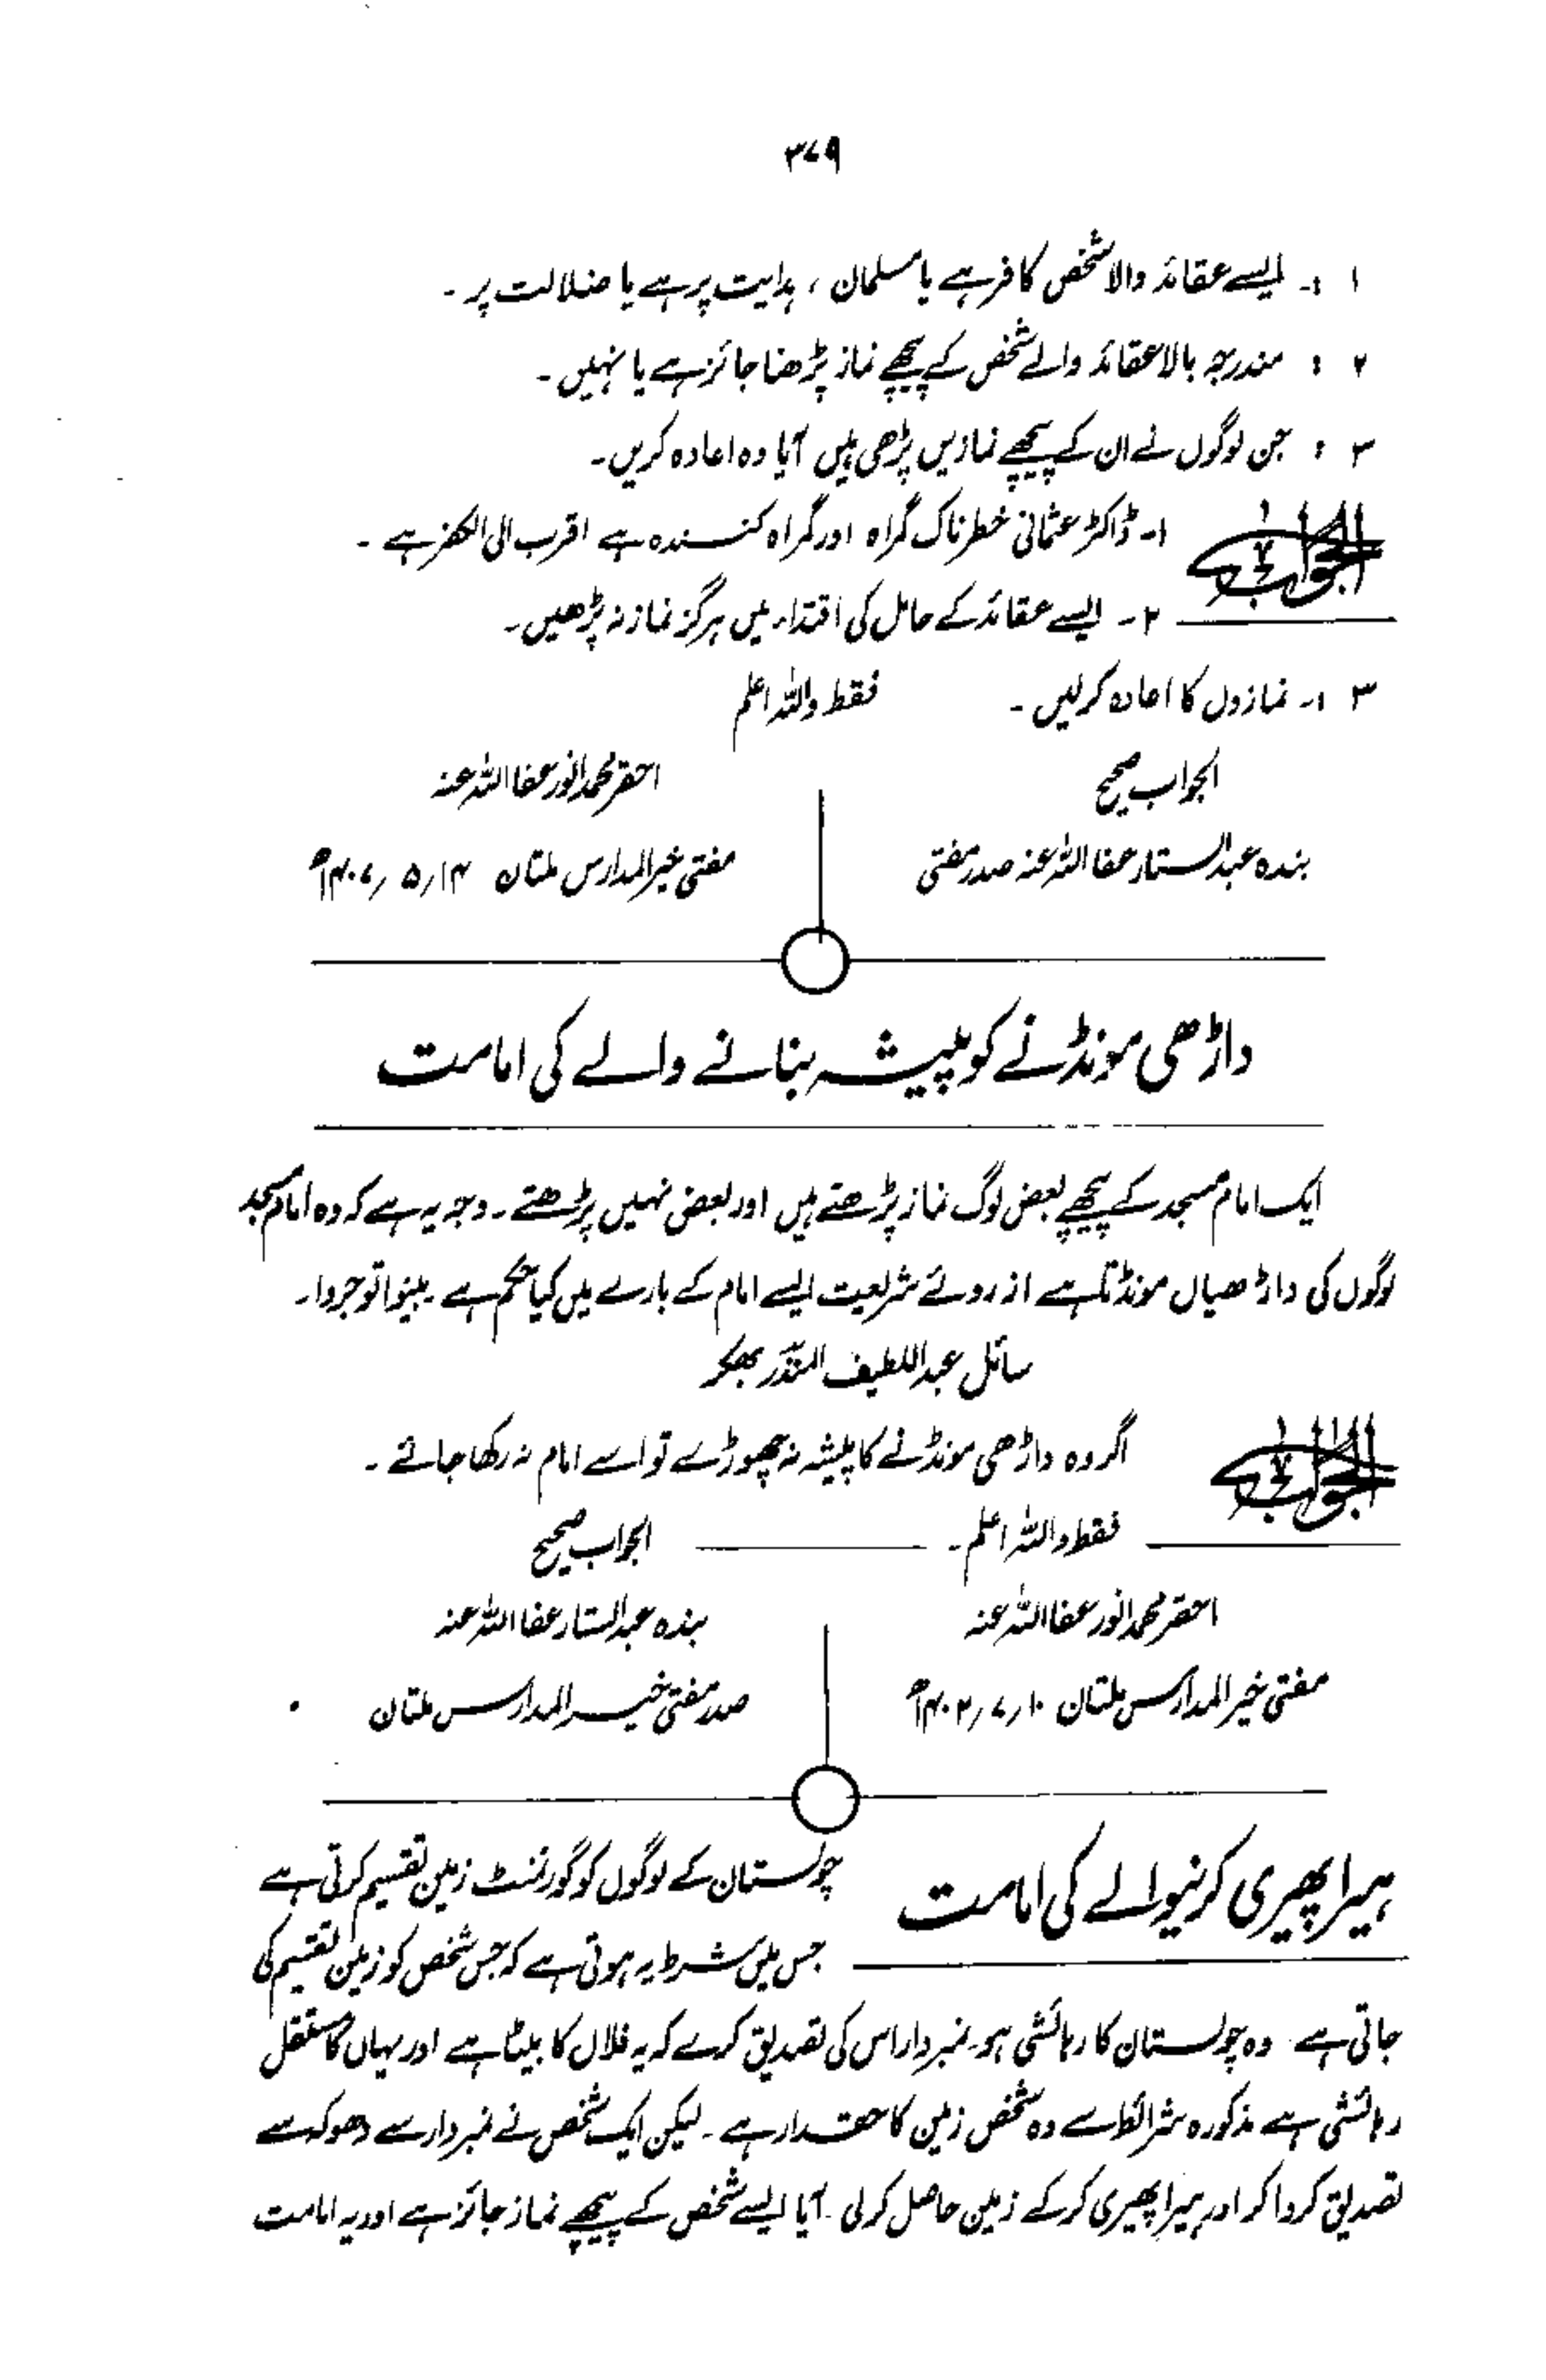 ۳۷۹
۱ :۔ ایسے عقائد والا شخص کافر ہے یا مسلمان ، ہدایت پر ہے یا ضلالت پر ۔
۲ : مندرجہ بالا عقائد والے شخص کے پیچھے نماز پڑھنا جائز ہے یا نہیں ۔
۳ : جن لوگوں نے ان کے پیچھے نمازیں پڑھی ہیں آیا وہ اعادہ کریں ۔
الجواب ۱۔ ڈاکٹر عثمانی خطرناک گمراہ اور گمراہ کنندہ ہے اقرب الی الکفر ہے ۔
۲۔ ایسے عقائد کے حامل کی اقتداء میں ہرگز نماز نہ پڑھیں ۔
۳ :۔ نمازوں کا اعادہ کرلیں ۔ فقط واللہ اعلم
الجواب صحیح احقر محمد انور عفا اللہ عنہ
بندہ عبدالستار عفا اللہ عنہ صدر مفتی مفتی خیر المدارس ملتان ۱۴؍۵؍۱۴۰۷ھ
داڑھی مونڈنے کو پیشہ بنانے والے کی امامت
ایک امام مسجد کے پیچھے بعض لوگ نماز پڑھتے ہیں اور بعض نہیں پڑھتے ۔ وجہ یہ ہے کہ وہ امام مسجد
لوگوں کی داڑھیاں مونڈتا ہے از روئے شریعت ایسے امام کے بارے میں کیا حکم ہے ۔ بینوا توجروا ۔
سائل عبداللطیف بھکر
الجواب اگر وہ داڑھی مونڈنے کا پیشہ نہ چھوڑے تو اسے امام نہ رکھا جائے ۔
فقط واللہ اعلم ۔ الجواب صحیح
احقر محمد انور عفا اللہ عنہ بندہ عبدالستار عفا اللہ عنہ
مفتی خیر المدارس ملتان ۱۰؍۷؍۱۴۰۲ھ صدر مفتی خیر المدارس ملتان
ہیرا پھیری کرنیوالے کی امامت چولستان کے لوگوں کو گورنمنٹ زمین تقسیم کرتی ہے
جس میں شرط یہ ہوتی ہے کہ جس شخص کو زمین تقسیم کی
جاتی ہے وہ چولستان کا رہائشی ہو ۔ نمبردار اس کی تصدیق کرے کہ یہ فلاں کا بیٹا ہے اور یہاں کا مستقل
رہائشی ہے مذکورہ شرائط سے وہ شخص زمین کا حقدار ہے ۔ لیکن ایک شخص نے نمبردار سے دھوکہ سے
تصدیق کروا کر اور ہیرا پھیری کرکے زمین حاصل کرلی ۔ آیا ایسے شخص کے پیچھے نماز جائز ہے اور یہ امامت